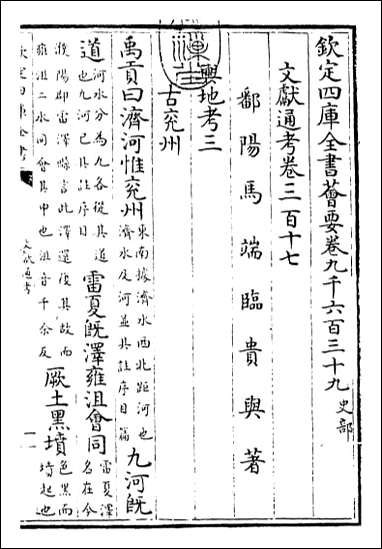 欽定四庫全書薈要卷九千六百三十九 史部
文獻通考卷三百十七
鄱陽馬端臨貴與著
輿地考三
古兖州
禹貢曰濟河惟兖州 東南據濟水西北距河也 濟水及河並具註序目篇 九河旣
道 河水分為九各從其道 也九河已具註序目 雷夏旣澤雍沮會同 雷夏澤 名在今
濮陽郡雷澤縣言此澤還復其故而 雍沮二水同會其中也沮音千余反 厥土黑墳 色黑而 墳起也
欽定四庫全書
文獻通考
一